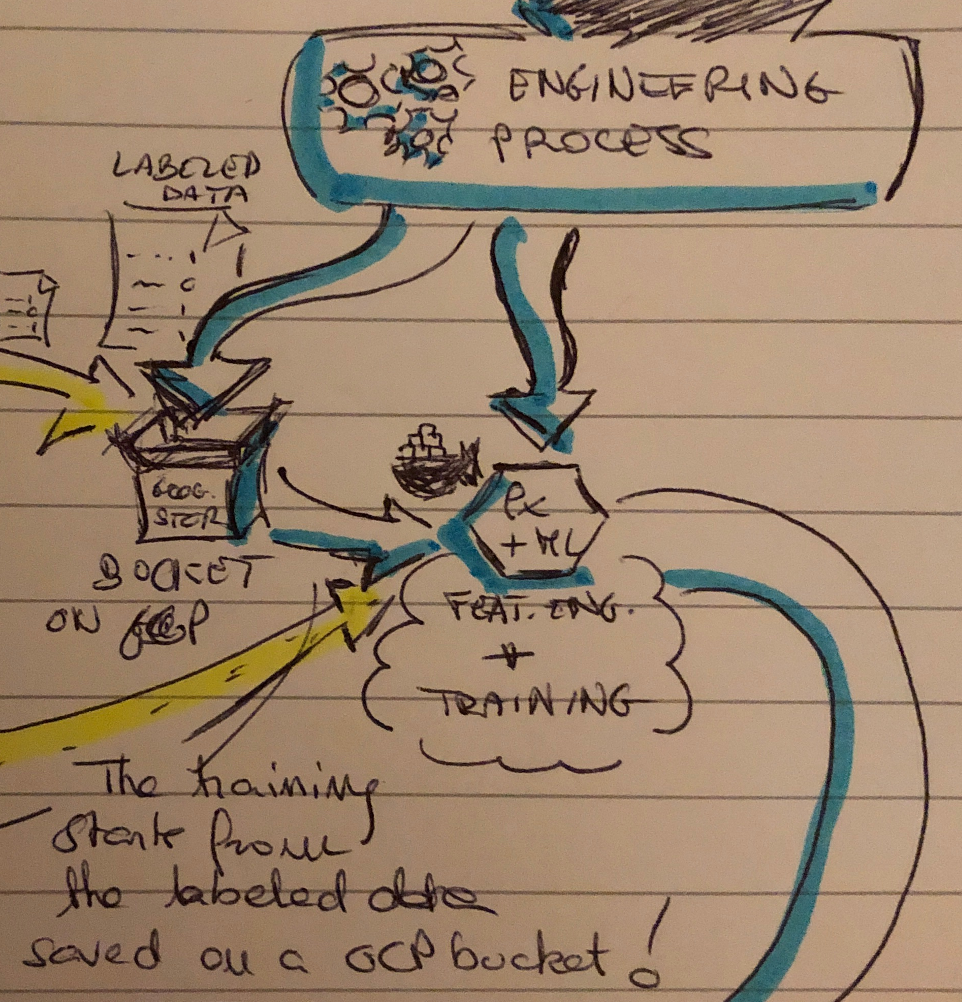 ENGINEERING
PROCESS
LABELED
DATA
GOOG.
STOR
BUCKET
ON GCP
+ ML
FEAT. ENG.
+
TRAINING
The training
starts from
the labeled data
saved on a GCP bucket!